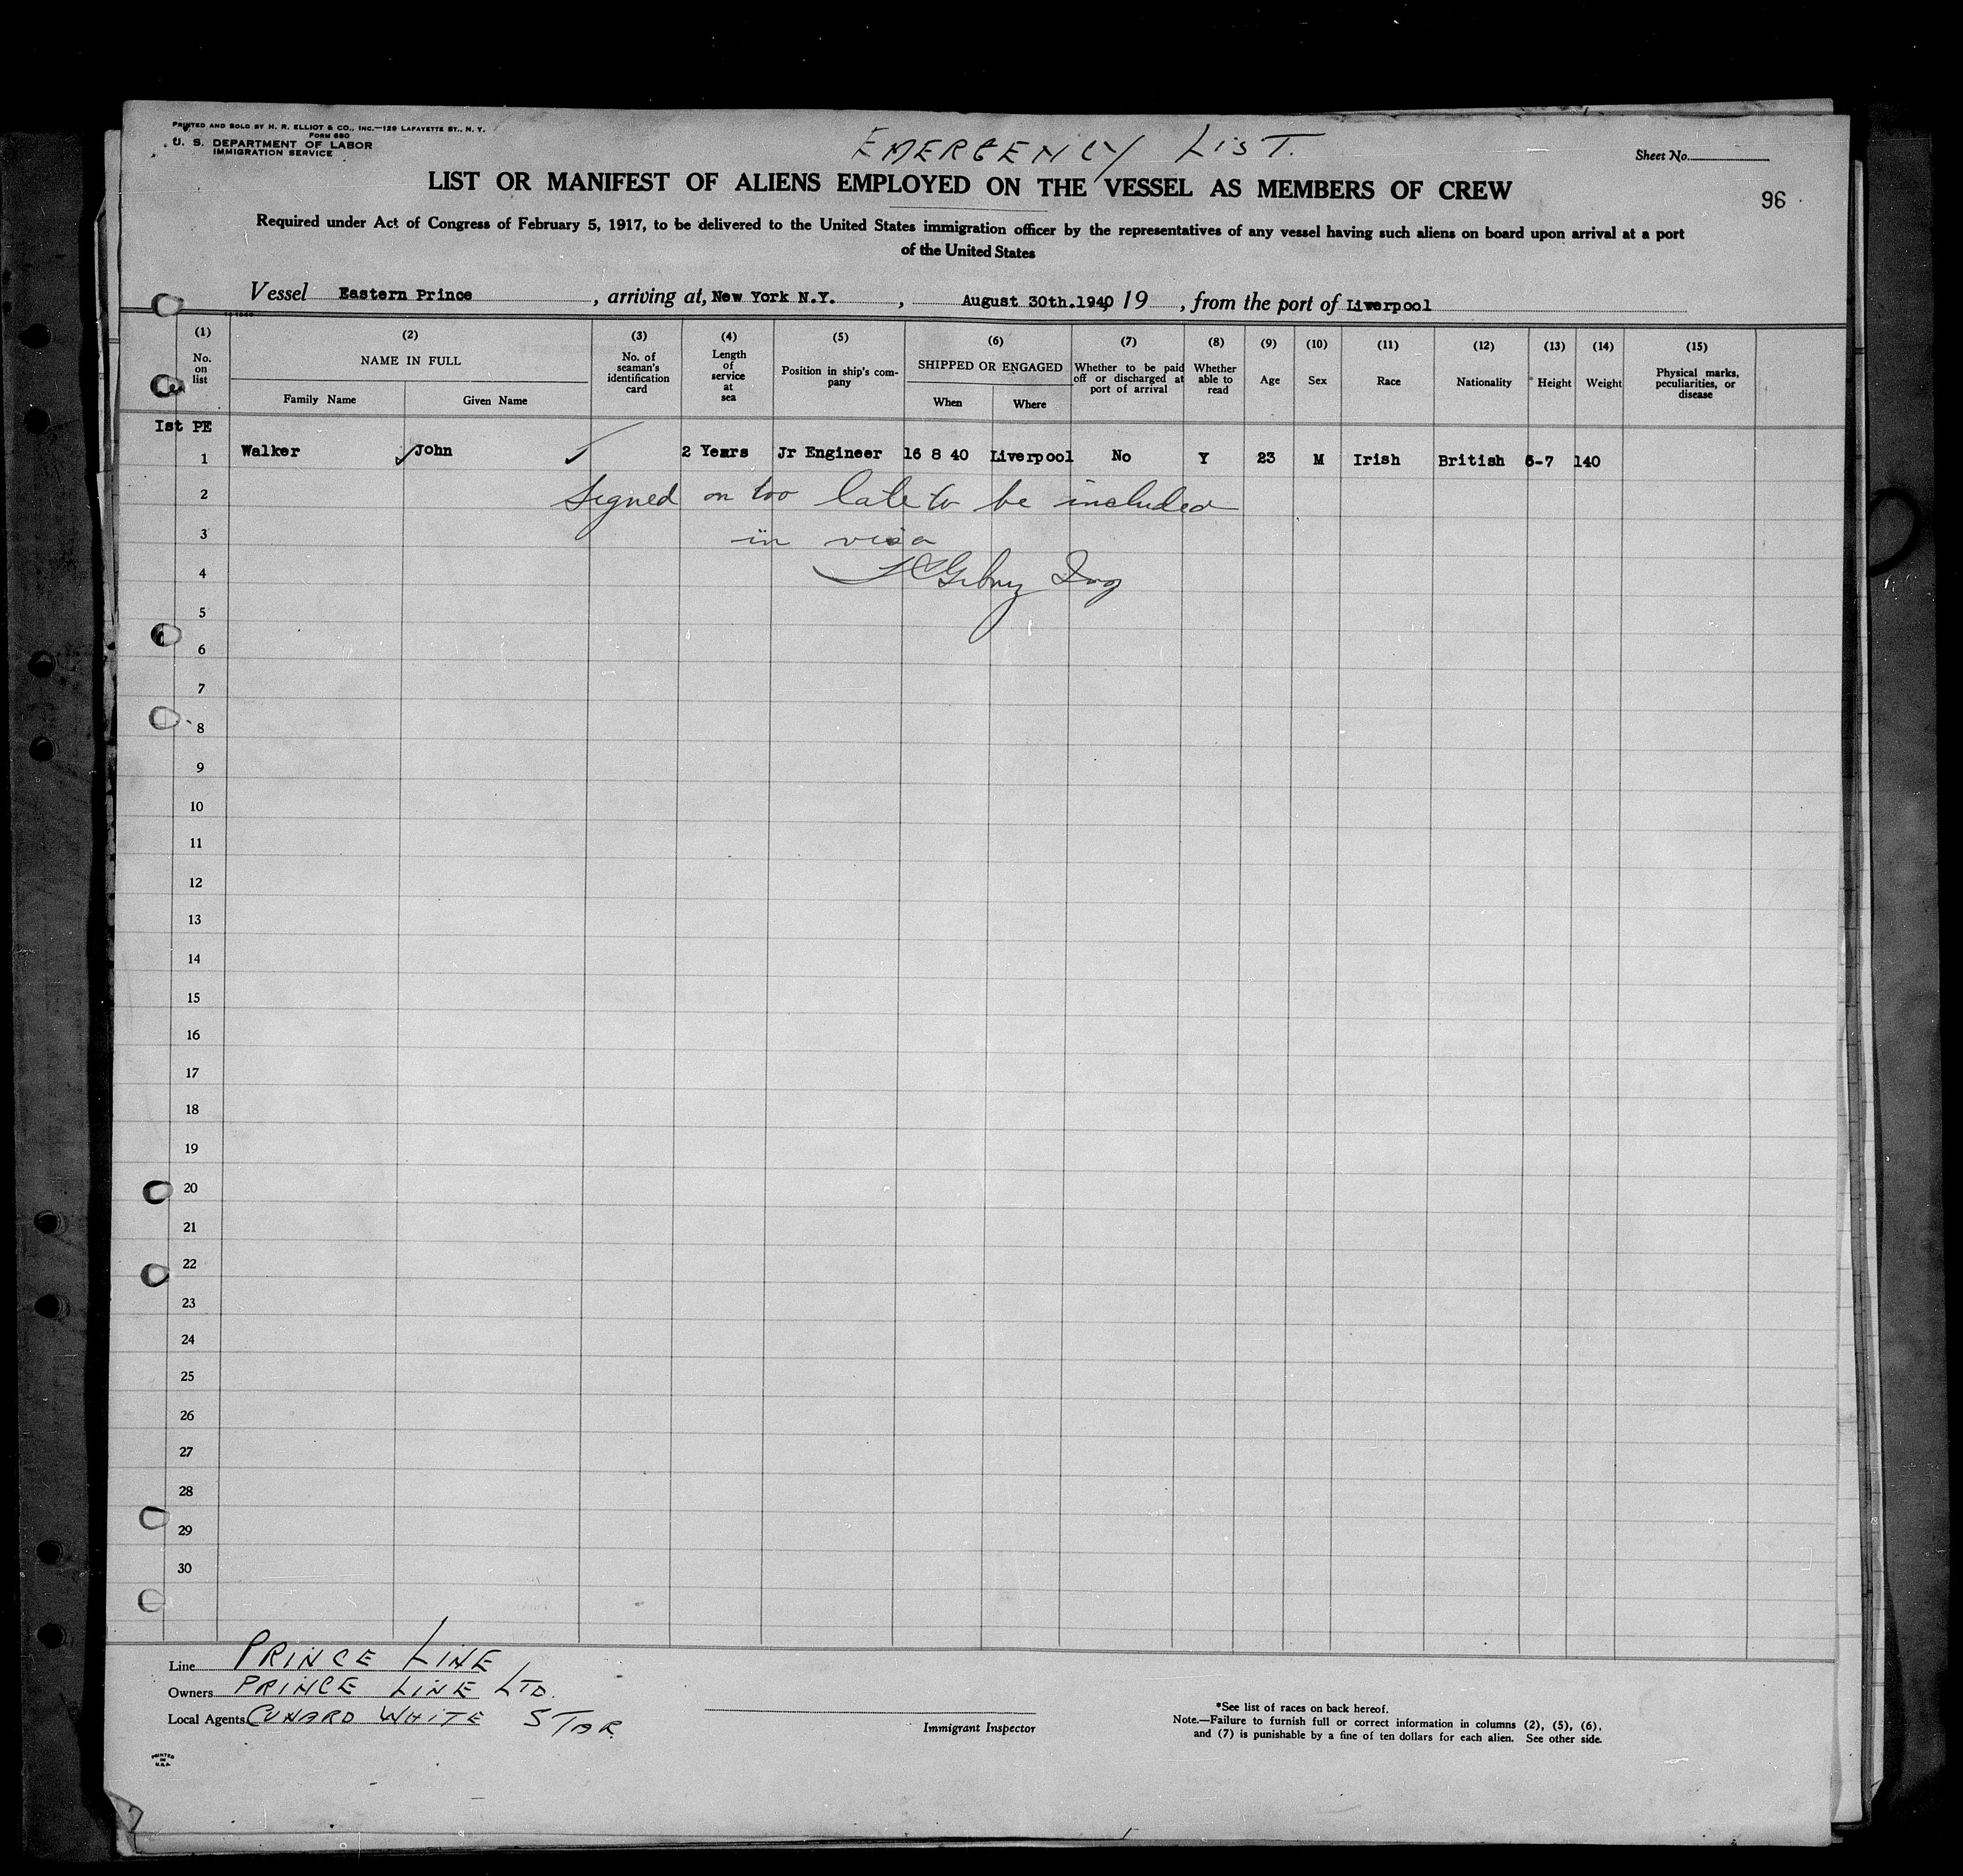 PRINTED AND SOLD BY H. R. ELLIOT & CO., INC.—129 LAFAYETTE ST., N. Y.
FORM 680
U. S. DEPARTMENT OF LABOR
IMMIGRATION SERVICE
EMERGENCY LIST.
Sheet No.
LIST OR MANIFEST OF ALIENS EMPLOYED ON THE VESSEL AS MEMBERS OF CREW
96
Required under Act of Congress of February 5, 1917, to be delivered to the United States immigration officer by the representatives of any vessel having such aliens on board upon arrival at a port
of the United States
Vessel Eastern Prince, arriving at, New York N.Y., August 30th.1940 19, from the port of Liverpool
(1) (2) (3) (4) (5) (6) (7) (8) (9) (10) (11) (12) (13) (14) (15)
No. on list
NAME IN FULL
Family Name Given Name
No. of seaman's identification card
Length of service at sea
Position in ship's company
SHIPPED OR ENGAGED
When Where
Whether to be paid off or discharged at port of arrival
Whether able to read
Age
Sex
Race
Nationality
* Height
Weight
Physical marks, peculiarities, or disease
Ist PE
1 Walker John 2 Years Jr Engineer 16 8 40 Liverpool No Y 23 M Irish British 5-7 140
2 Signed on too late to be included
3 in visa
4
5
6
7
8
9
10
11
12
13
14
15
16
17
18
19
20
21
22
23
24
25
26
27
28
29
30
Line PRINCE LINE
Owners PRINCE LINE LTD.
Local Agents CUNARD WHITE STAR
Immigrant Inspector
*See list of races on back hereof.
Note.—Failure to furnish full or correct information in columns (2), (5), (6),
and (7) is punishable by a fine of ten dollars for each alien. See other side.
PRINTED
IN
U.S.A.